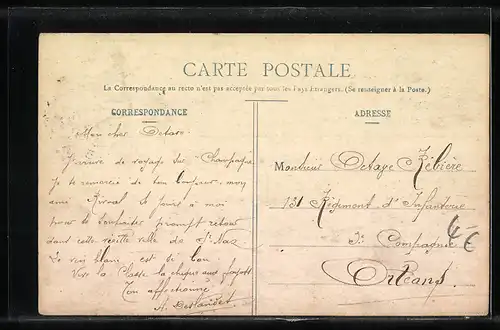 CARTE POSTALE
La Correspondance au recto n'est pas acceptée par tous les Pays Etrangers. (Se renseigner à la Poste.)
CORRESPONDANCE
Mon cher Octave
J'arrive de voyage de Champagne
Je te remercie de ton bonjour. mon
ami se joint à moi
pour te souhaiter prompt retour
dans cette vieille ville de St Naz
Le vin blanc est si bon
Vive la Classe la
Ton affectionné
ADRESSE
Monsieur Octave Rebière
131 Régiment d'Infanterie
Compagnie
Orléans
4-€